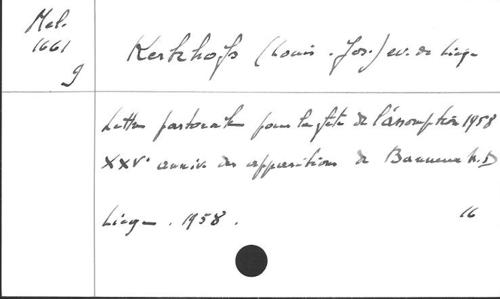 Mel.
1661
9
Kerkhofs (Louis. Jos.) ev. de Liège
Lettre pastorale pour la fête de l'assomption 1958
XXVe anniv. des apparitions de Banneux N.D
Liège. 1958.
16